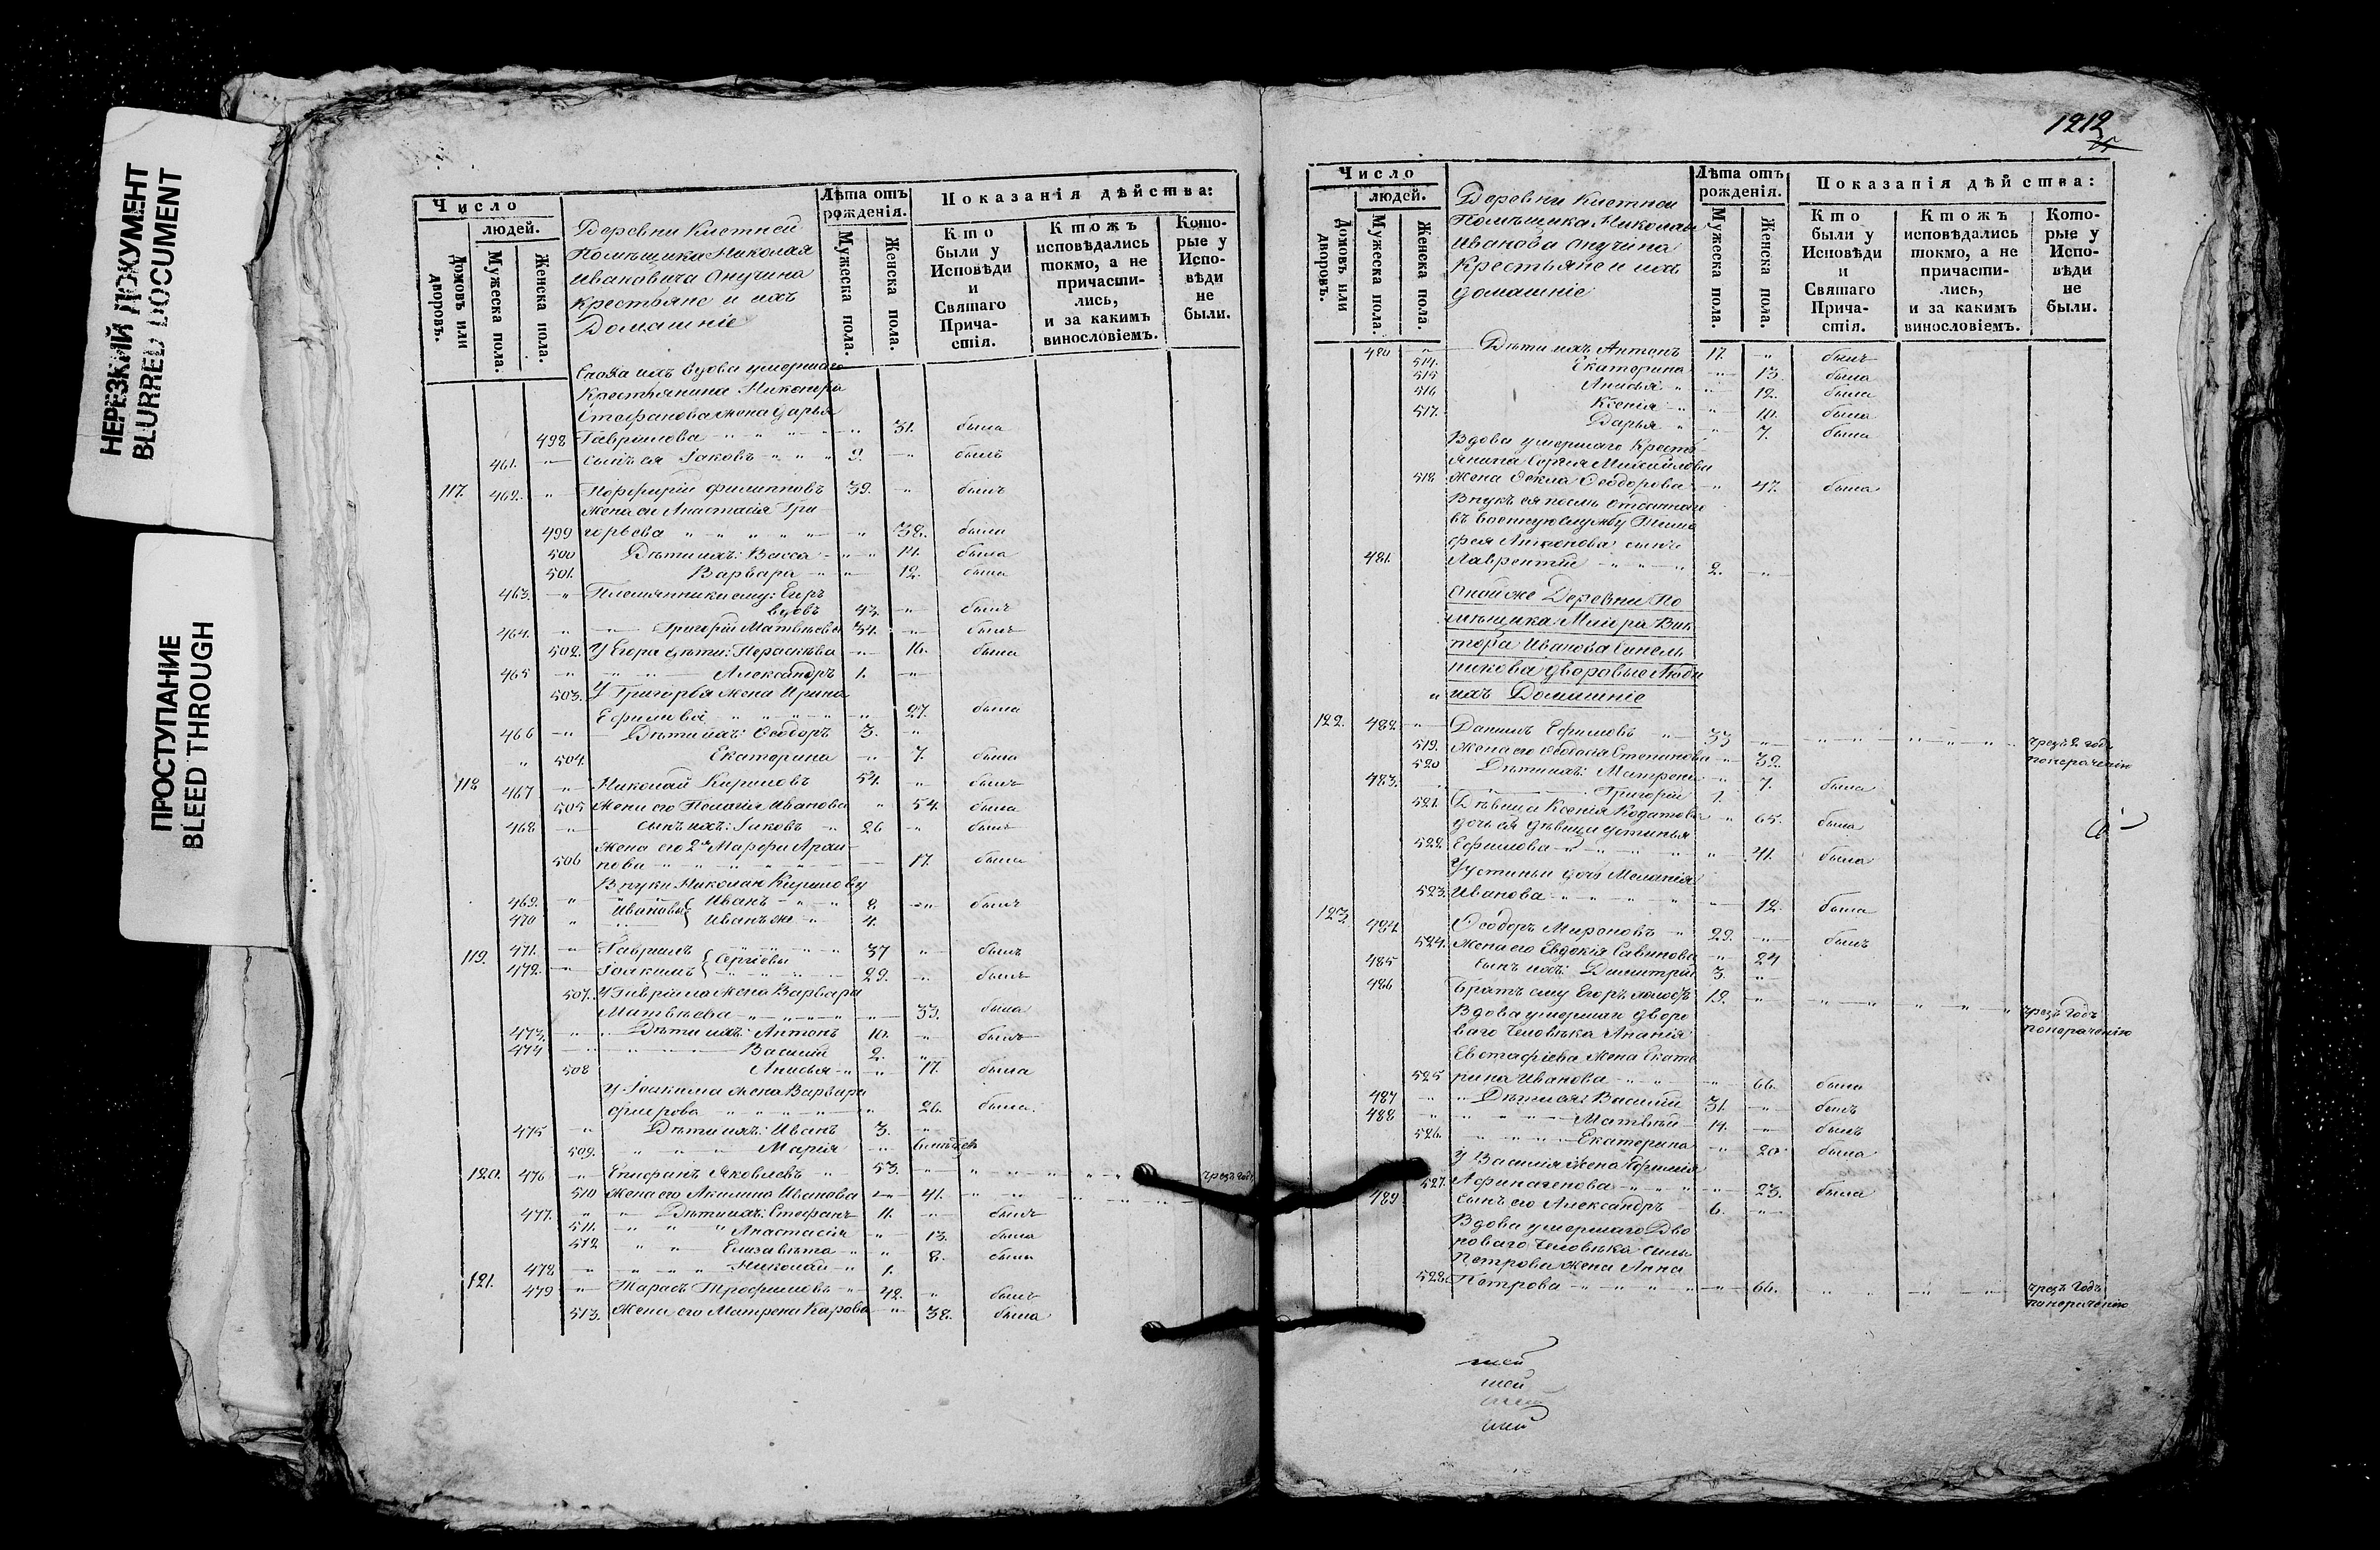 НЕРЕЗКИЙ ДОКУМЕНТ
BLURRED DOCUMENT
ПРОСТУПАНИЕ
BLEED THROUGH
Число
людей.
Домовъ или дворовъ.
Мужеска пола.
Женска пола.
Деревни Кистней
Помѣщика Николая
Ивановича Опучина
Крестьяне и ихъ
Домашніе
Лѣта отъ рожденія.
Мужеска пола.
Женска пола.
Показанія дѣйства:
Кто были у Исповѣди и Святаго Причастія.
Ктожъ исповѣдались токмо, а не причастились, и за какимъ винословіемъ.
Которые у Исповѣди не были.
Сноха ихъ вдова умершаго
Крестьянина Никонора
Стефанова жена Дарья
498 Гавриилова 31. была
461. сынъ ея Іаковъ 9. былъ
117. 462. Порфирій Филипповъ 39. былъ
Жена его Анастасія Гри
499 горьева 38. была
500 Дѣти ихъ: Васса 14. была
501. Варвара 12. была
463. Племянники ему: Егоръ
вдовъ 43. былъ
464. Григорій Матвѣевы 34. былъ
502. У Егора дѣти: Параскѣва 16. была
465 Александръ 1.
503. У Григорья жена Ирина
Ефимова 27. была
466 Дѣти ихъ: Ѳеодоръ 3.
504. Екатерина 7. была
118 467 Николай Кириловъ 54. былъ
505 Жена его Пелагія Иванова 54. была
468 сынъ ихъ: Іаковъ 26 былъ
Жена его 2я Марфа Архи-
506 пова 17. была
Внуки Николаю Кирилову
469. Ивановы Иванъ 8. былъ
470 Иванъ же 4.
119. 471. Гавріилъ Сергіевы 37 былъ
472. Іоакимъ 29. былъ
507. У Гавріила жена Варвара
Матвѣева 33. была
473. Дѣти ихъ: Антонъ 10. былъ
474 Василій 2.
508 Анисья 17. была
У Іоакима жена Варвара
26. была.
475 Дѣти ихъ: Иванъ 3.
509. Марія
120. 476 Епифанъ Яковлевъ 53. чрезъ годъ
510 Жена его Акилина Иванова 41.
477. Дѣти ихъ: Стефанъ 11. былъ
511. Анастасія 13. была
512 Елизавѣта 8. была
478 Николай 1.
121. 479 Тарасъ Трофимовъ 42. былъ
513. Жена его Матрена Карпова 38. была
1212
Число
людей.
Домовъ или дворовъ.
Мужеска пола.
Женска пола.
Деревни Кистней
Помѣщика Николая
Иванова Опучина
Крестьяне и ихъ
домашніе
Лѣта отъ рожденія.
Мужеска пола.
Женска пола.
Показанія дѣйства:
Кто были у Исповѣди и Святаго Причастія.
Ктожъ исповѣдались токмо, а не причастились, и за какимъ винословіемъ.
Которые у Исповѣди не были.
480 Дѣти ихъ Антонъ 17 былъ
514. Екатерина 13. была
515 Анисья 12. была
516 Ксенія 10. была
517. Дарья 7. была
Вдова умершаго Кресть
янина Сергія Михайлова
518 жена Ѳекла Ѳеодорова 47. была
Внукъ ея послѣ отданнаго
въ военную службу Тимо
фея Антонова сынъ
481. Лаврентій 2.
Оной же Деревни По
мѣщика Маіора Вик
тора Иванова Синель
никова дворовые Люди
ихъ Домашніе
122. 482. Даніилъ Ефимовъ 33 чрезъ 2 года
519. Жена его Ѳеодосія Степанова 32. понераченію
520 Дѣти ихъ: Матрена 7. была
483. Григорій 1.
521. Дѣвица Ксенія Кодатова 65. была
дочь ея дѣвица Устинья
522. Ефимова 41. была
Устиньи дочь Меланія
523. Иванова 12. была
123. 484. Ѳеодоръ Мироновъ 29. былъ
524. Жена его Евдокія Савинова 24
485 Сынъ ихъ: Димитрій 3.
486 Братъ ему Егоръ холостъ 19. чрезъ годъ
понераченію
Вдова умершаго дворо
ваго Человѣка Ананія
Евстафіева жена Екате
525 рина Иванова 66. была
487 Дѣти ихъ Василій 31. былъ
488 Матвѣй 14. былъ
526. Екатерина 20. была
У Василія жена Ефимія
527. Афиногенова 23. была
489 Сынъ его Александръ 6.
Вдова умершаго Дво
роваго Человѣка Силы
Петрова жена Анна
528. Петрова 66. чрезъ годъ
понераченію
шей
шей
шей
шей